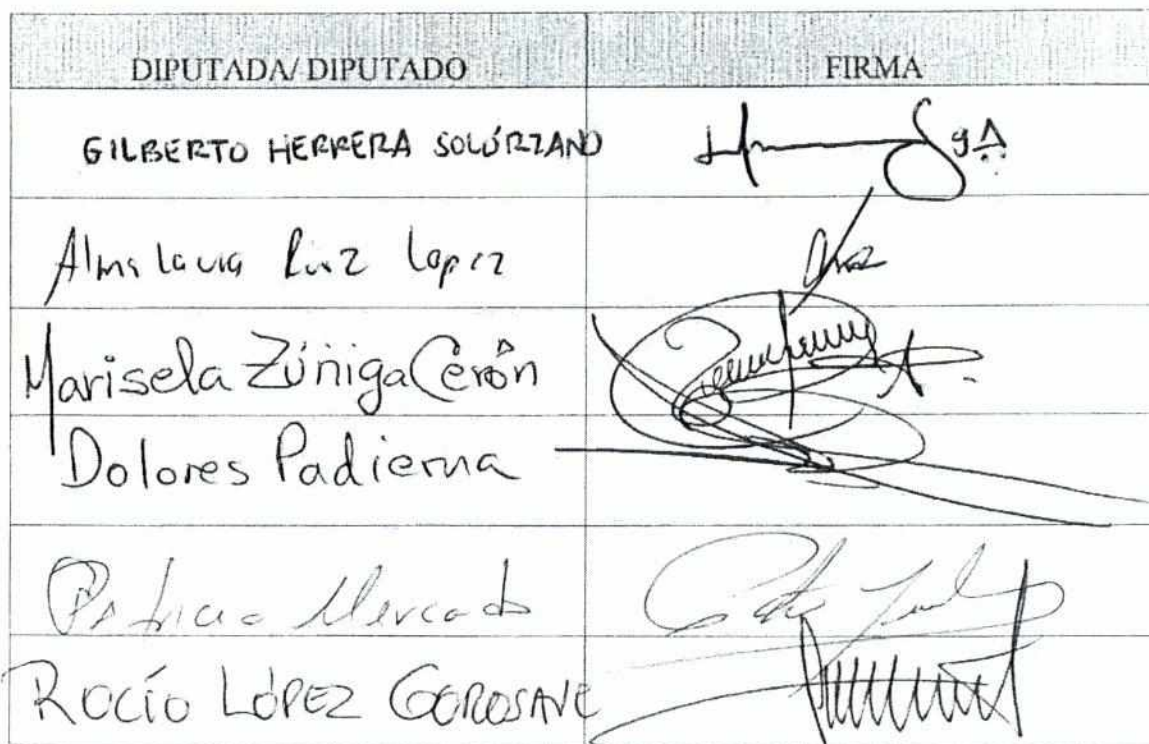 DIPUTADA/ DIPUTADO FIRMA
GILBERTO HERRERA SOLÓRZANO
Alma Laura Ruiz Lopez
Marisela Zúñiga Cerón
Dolores Padierna
Patricia Mercado
ROCÍO LÓPEZ GOROSAVE